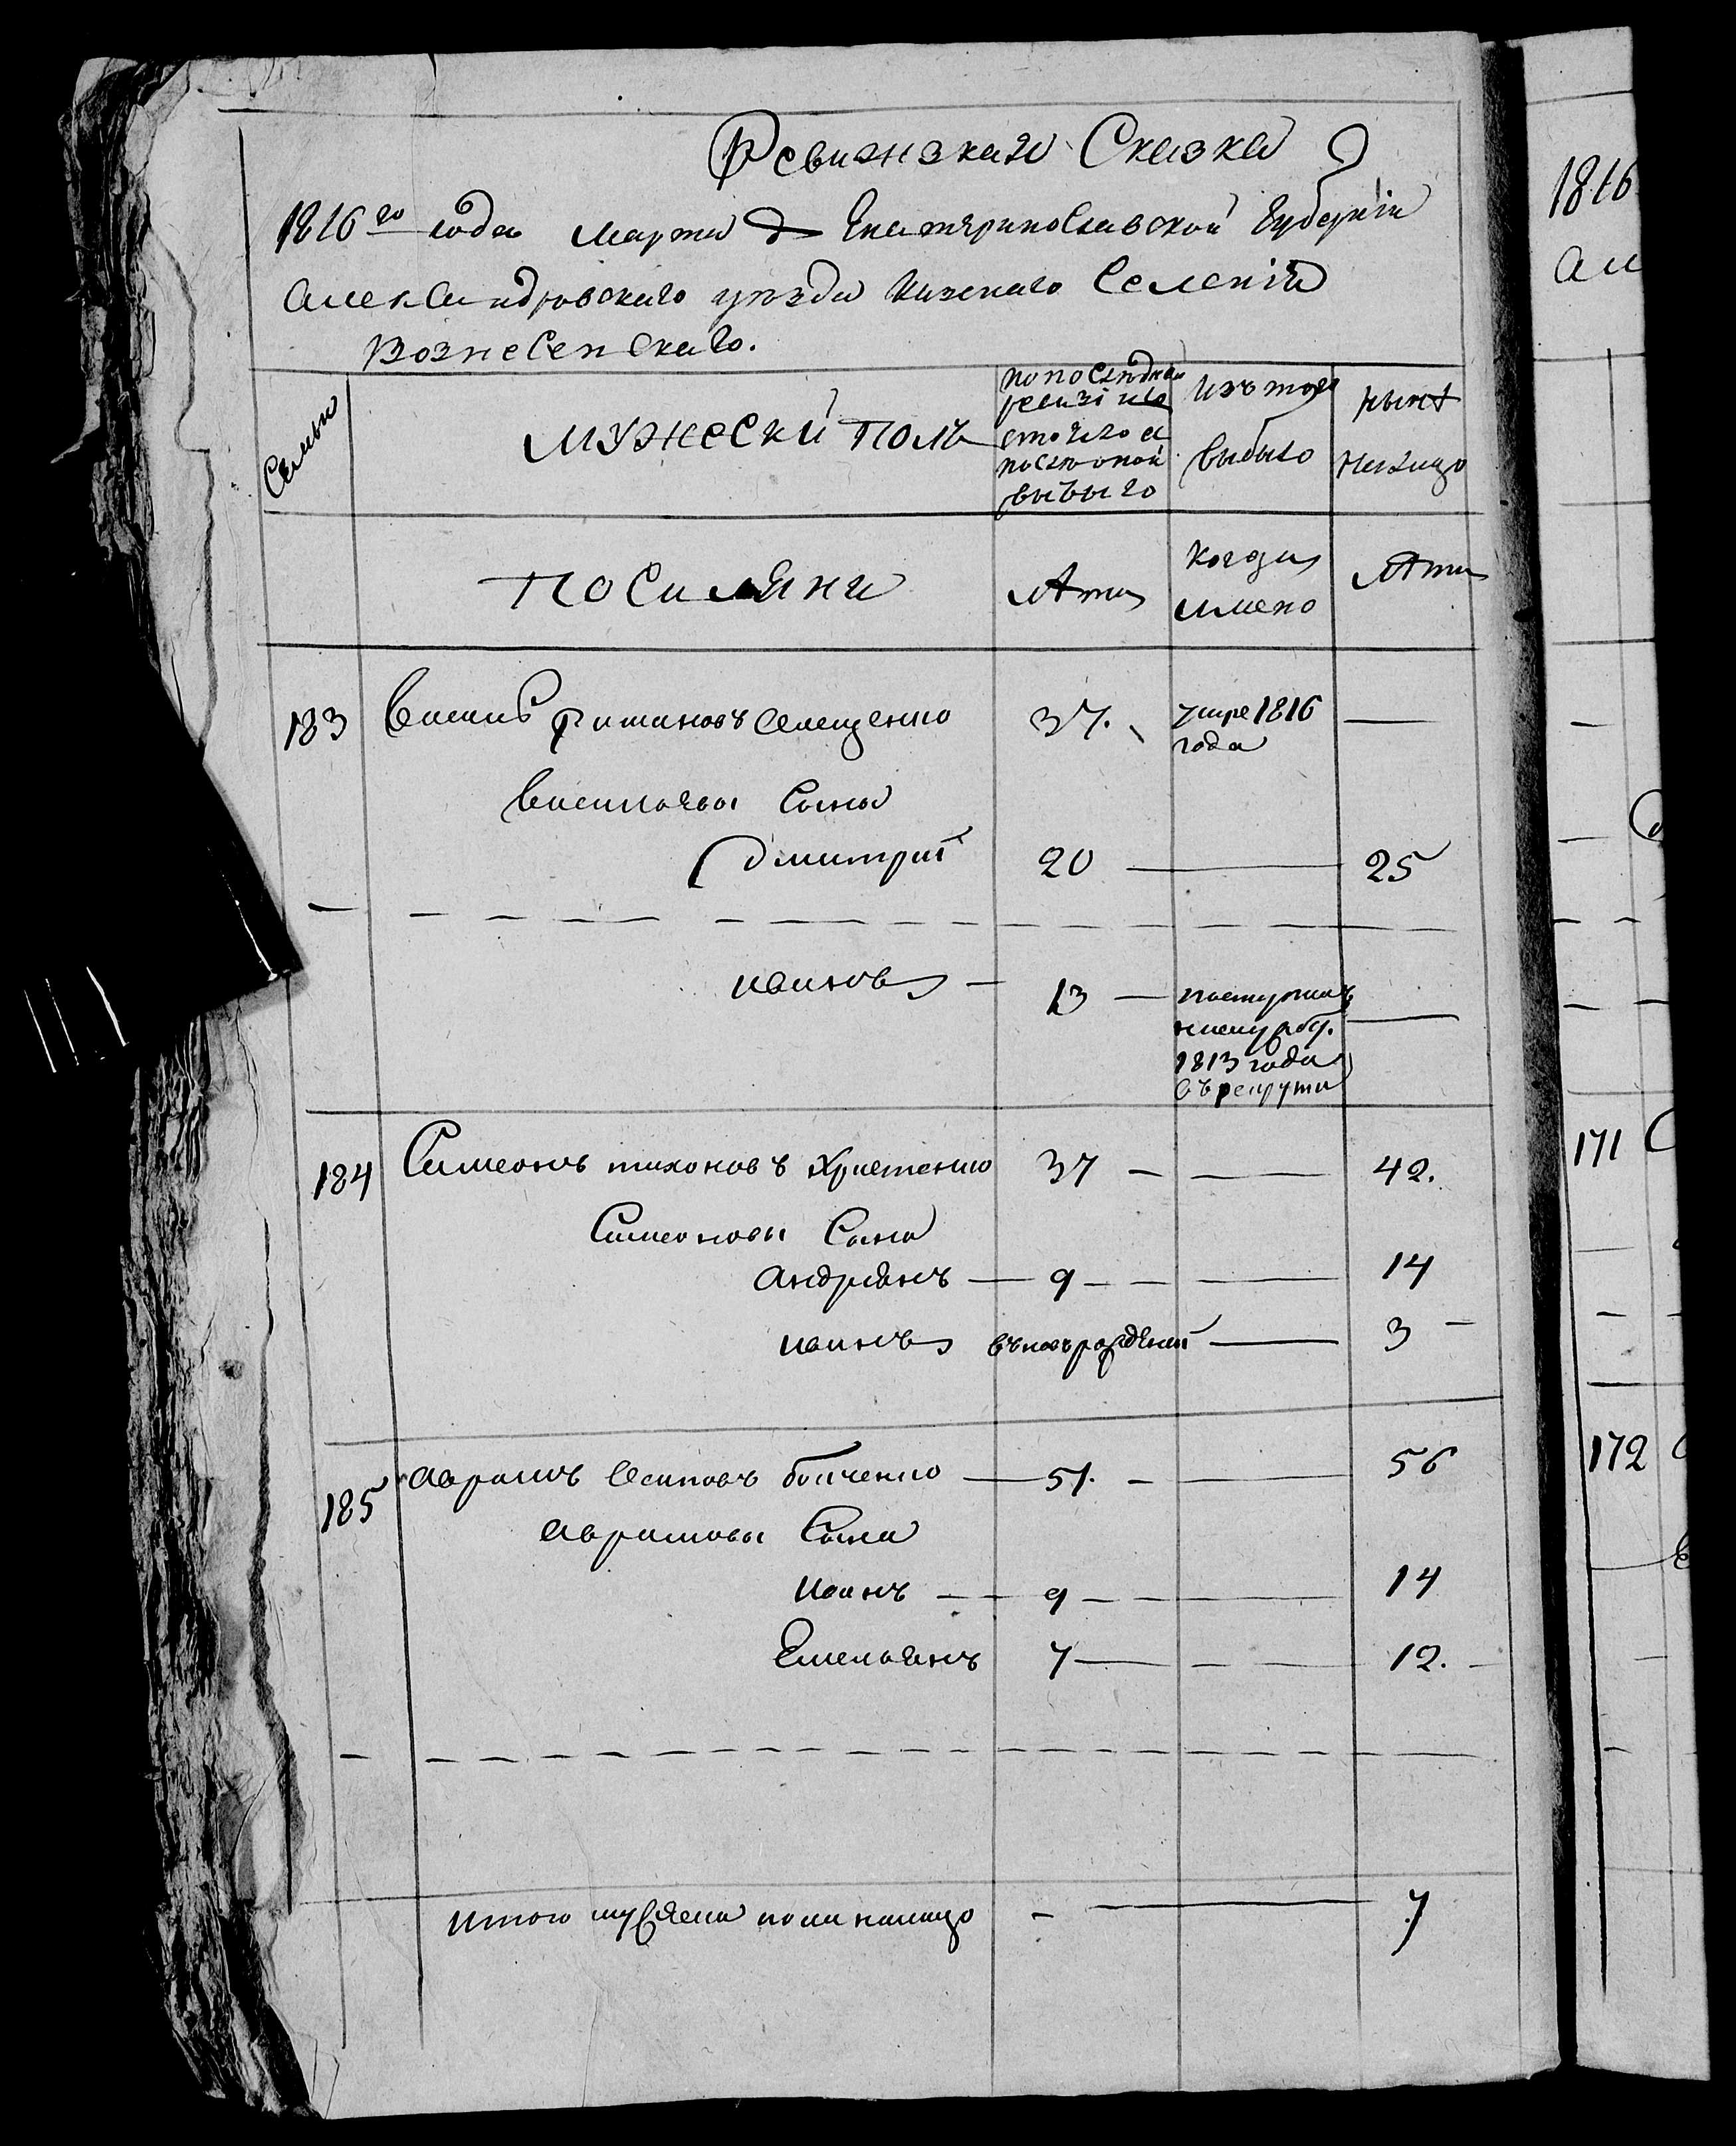 Ревижзкая Сказка
1816го года Марта Екатериносласкои Губернiи
Александровскаго уѣзда Казенаго Селенiя
Вознесенскаго.
Семьи
Мужески Полъ
по последнеи
ревизiи со
стояло и
после оной
выбыло
Изъ того
выбыло
нынѣ
налицо
Поселяни
Лѣта
Когда
имено
Лѣта
183 Василь Романовъ Семещенко 37. умре 1816
года —
Васильевы Сыны
Дмитрий 20 — 25
Иванъ — 13 — поступилъ
1813 года
въ рекруты
184 Симеонъ тихоновъ Христенко 37 — 42.
Симеоновы Сына
Андриянъ — 9 — 14
Иванъ въновърожденъ — 3
185 Аврамъ Осиповъ бойченко — 51. — 56
Аврамовы Сына
Иванъ — 9 — 14
Емельянъ 7 — 12.
Итого мужеска пола налицо — 7
1816
Ал
171 С
172